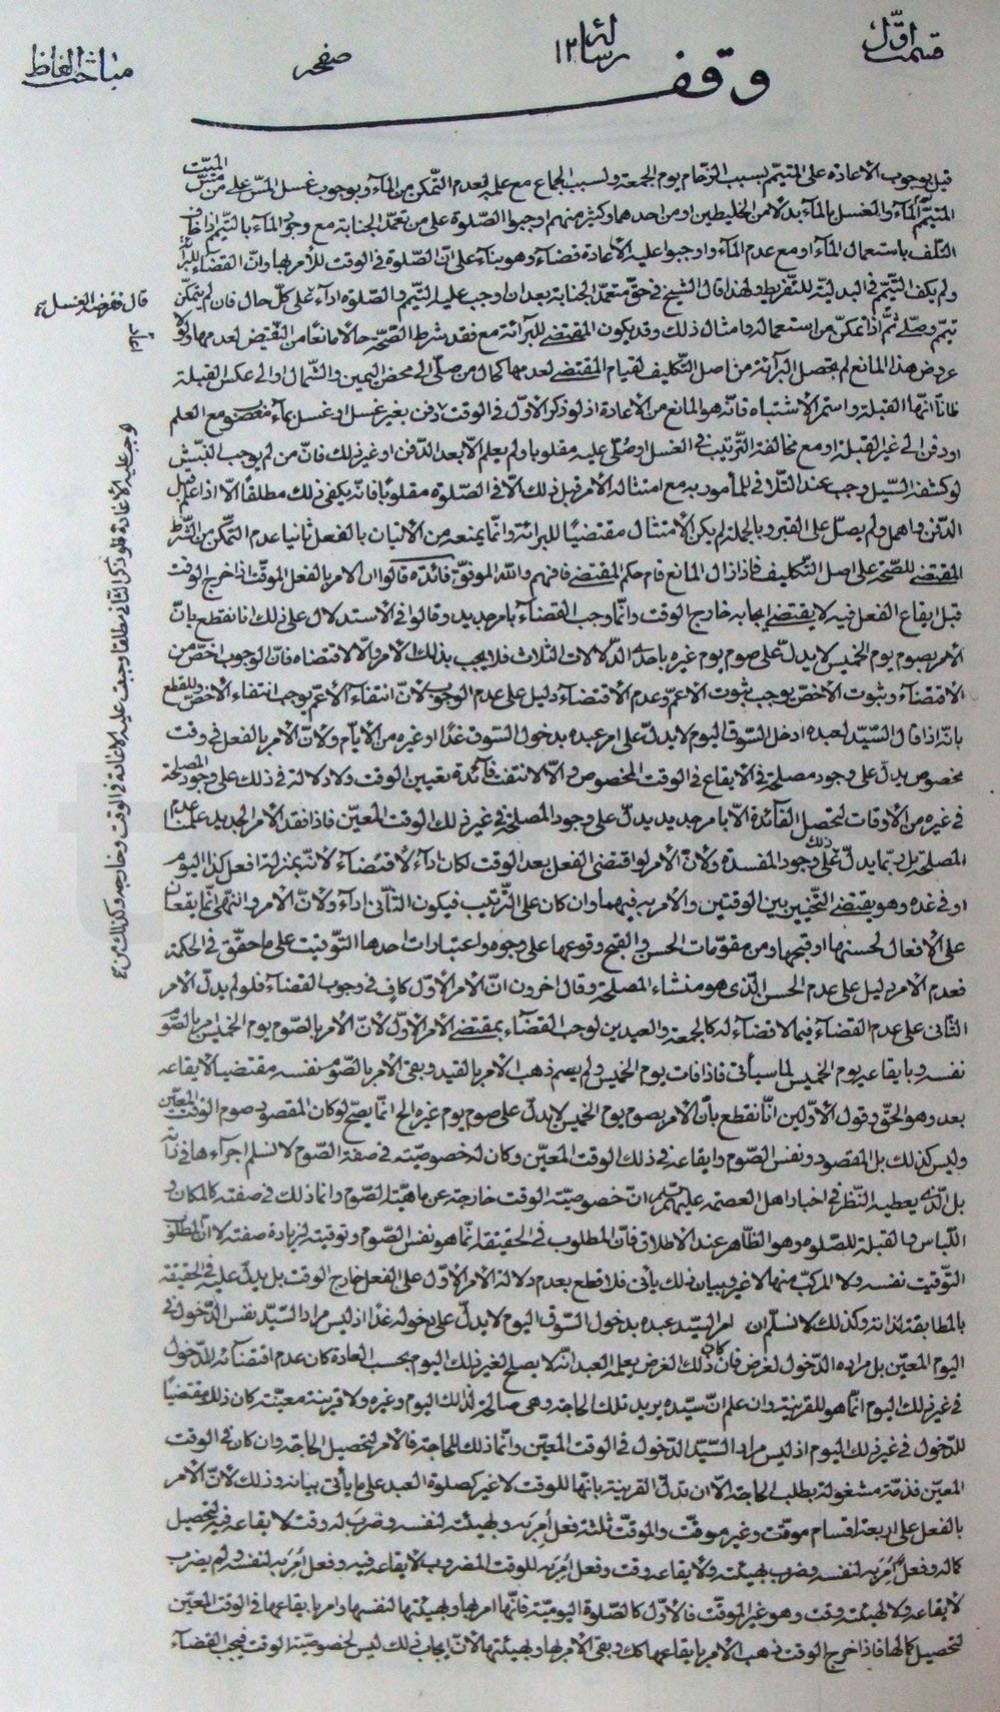 قسمت اوّل
رسالة ١٢
صفحه
مباحث الفاظ
وقف
قيل بوجوب الأعادة على المتيمّم بسبب الزحام يوم الجمعة ولسبب الجماع مع علمه بعدم التمكن من الماء وبوجوب غسل المسّ على من مسّ الميّت
المتيمّم بالماء والمغسل بالماء بدلا من الخليطين او من احدهما وكثير منهم اوجبوا الصّلوة على من تعمّد الجنابة مع وجود الماء بالتيمّم اذا خاف
التلف باستعمال الماء او مع عدم الماء واوجبوا عليه الأعادة قضاء وهو بناء على انّ الصّلوة في الوقت للأمر بها وانّ القضاء
ولم يكف التيمّم في البدليّة للتفريط ولهذا قال الشيخ في حقّ متعمّد الجنابة بعد ان اوجب عليه التيمّم والصّلوة اداء على كلّ حال فان لم يتمكّن
تيمّم وصلّى ثمّ اذا تمكّن من استعماله وامثال ذلك وقد يكون المقتضى للبرائة مع فقد شرط الصّحّة حالا مانعا من النقيض لعدمها ولولا
عروض هذا المانع لم تحصل البرائة من اصل التّكليف لقيام المقتضى لعدمها كحال من صلّى الى محض اليمين والشّمال او الى عكس القبلة
ظانّا انّها القبلة واستمرّ الاشتباه فانّه هو المانع من الأعادة اذ لو ذكر الأوّل في الوقت دفن بغير غسل او غسل بماء مغصوب مع العلم
او دفن الى غير القبلة او مع مخالفة التّرتيب في الغسل او صُلّى عليه مقلوبا ولم يعلم الّا بعد الدّفن او غير ذلك فانّ من لم يوجب النبش
لو كشفه السّيل وجب عند التّلافي للمأمور به مع امتثاله الأمر قبل ذلك الّا في الصّلوة مقلوبا فانّه يكفى ذلك مطلقا الّا اذا علم قبل
الدّفن واهمل ولم يصلّ على القبر وبالجملة لم يكن الأمتثال مقتضيا للبرائة وانّما يمنعه من الأتيان بالفعل ثانيا عدم التمكّن من الشّرط
المقتضى للصّحّة على اصل التّكليف فاذا زال المانع قام حكم المقتضى فافهم واللّه الموفّق فائدة قالوا ان الأمر بالفعل الموقّت اذا خرج الوقت
قبل ايقاع الفعل فيه لا يقتضى ايجابه خارج الوقت وانّما وجب القضاء بأمر جديد وقالوا في الاستدلال على ذلك انا نقطع بانّ
الأمر بصوم يوم الخميس لا يدلّ على صوم يوم غيره باحدى الدّلالات الثلاث فلا يجب بذلك الأمر والّا لاقتضاه فانّ الوجوب اخصّ من
الاقتضاء وثبوت الأخصّ يوجب ثبوت الأعمّ وعدم الاقتضاء دليل على عدم الوجوب لانّ انتفاء الأعمّ يوجب انتفاء الأخصّ وللقطع
بانّه اذا قال السّيّد لعبده ادخل السّوق اليوم لا يدلّ على امر عبده بدخول السّوق غدا او غيره من الأيّام ولانّ الأمر بالفعل في وقت
مخصوص يدلّ على وجود مصلحة في الايقاع في الوقت المخصوص والّا لانتفت فائدة تعيين الوقت ولا دلالة في ذلك على وجود المصلحة
في غيره من الأوقات لتحصل الفائدة الّا بأمر جديد يدلّ على وجود المصلحة في غير ذلك الوقت المعيّن فاذا فقد الأمر الجديد علمنا عدم
المصلحة بل ربّما يدلّ ذلك على وجود المفسدة ولانّ الأمر لو اقتضى الفعل بعد الوقت لكان اداء لا قضاء لانّه بمنزلة افعل كذا اليوم
او في غده وهو يقتضى التّخيير بين الوقتين والأمر به فيهما وان كان على التّرتيب فيكون الثّانى اداء ولانّ الأمر والنّهى انّما يقعان
على الأفعال لحسنها او قبحها ومن مقوّمات الحسن والقبح وقوعها على وجوه واعتبارات احدها التّوقيت على ما حقّق في الحكمة
فعدم الأمر دليل على عدم الحسن الّذى هو منشاء المصلحة وقال اخرون انّ الأمر الأوّل كاف في وجوب القضاء فلو لم يدلّ الأمر
الثّانى على عدم القضاء فيما لا قضاء له كالجمعة والعيدين لوجب القضاء بمقتضى الأمر الأوّل لانّ الأمر بالصّوم يوم الخميس امر بالصّوم
نفسه وبايقاعه يوم الخميس لما سيأتى فاذا فات يوم الخميس ولم يصم ذهب الأمر بالقيد وبقى الأمر بالصّوم نفسه مقتضيا لايقاعه
بعده وهو الحقّ وقول الأوّلين انّا نقطع بأنّ الأمر بصوم يوم الخميس لا يدلّ على صوم يوم غيره الخ انّما يصحّ لو كان المقصود صوم الوقت المعيّن
وليس كذلك بل المقصود نفس الصّوم وايقاعه في ذلك الوقت المعيّن وكان له خصوصيّته في صفة الصّوم لا نسلم اجراءها في ذاته
بل الّذى يعطيه النّظر في اخبار اهل العصمة عليهم السّلام انّ خصوصيّة الوقت خارجة عن ماهيّة الصّوم وانما ذلك في صفته كالمكان و
اللّباس والقبلة للصّلوة وهو الظّاهر عند الاطلاق فانّ المطلوب في الحقيقة انّما هو نفس الصّوم وتوقيته لزيادة صفته لا انّ المطلوب
التّوقيت نفسه ولا المركّب منهما لا غير وبيان ذلك يأتى فلا قطع بعدم دلالة الأمر الأوّل على الفعل خارج الوقت بل يدلّ عليه في الحقيقة
بالمطابقة لذاته وكذلك لا نسلّم ان امر السيّد عبده بدخول السّوق اليوم لا يدلّ على دخوله غدا اذ ليس مراد السّيّد نفس الدّخول في
اليوم المعيّن بل مراده الدّخول لغرض فان كان ذلك الغرض يعلم العبد انّه لا يصلح لغير ذلك اليوم بحسب العادة كان عدم اقتضائه للدّخول
في غير ذلك اليوم انّما هو للقرينة وان علم انّ سيّده يريد تلك الحاجة وهى صالحة لذلك اليوم وغيره ولا قرينة معيّنة كان ذلك مقتضيا
للدّخول في غير ذلك اليوم اذ ليس مراد السّيّد الدّخول في الوقت المعيّن وانّما ذلك للحاجة فالأمر لتحصيل الحاجة وان كان في الوقت
المعيّن فذمّته مشغولة بطلب الحاجة الّا ان تدلّ القرينة بانّها للوقت لا غير كصلوة العيد على ما يأتى بيانه وذلك لانّ الأمر
بالفعل على اربعة اقسام موقّت وغير موقّت والموقّت ثلثة فعل اُمِرَ به وبهيئته لنفسه وضرب له وقت لايقاعه فيه لتحصيل
كماله وفعلٌ اُمِرَ به لنفسه وضرب بهيئته ولايقاعه وقت وفعل اُمِرَ به للوقت المضروب لايقاعه فيه وفعل اُمِرَ به لنفسه ولم يضرب
لايقاعه ولا لهيئته وقت وهو غير الموقّت فالأوّل كالصّلوة اليوميّة فانّها امر بها وبهيئتها لنفسها وامر بايقاعها في الوقت المعيّن
لتحصيل كمالها فاذا خرج الوقت ذهب الأمر بايقاعها كك وبقى الأمر بها وبهيئتها لانّ ايجاب ذلك ليس لخصوصيّة الوقت فيجب القضاء
قال فرض الغسل
لوجب عليه الأعادة فلو ذكر الثّانى مطلقا وجبت عليه الأعادة في الوقت وخارجه وكذلك من